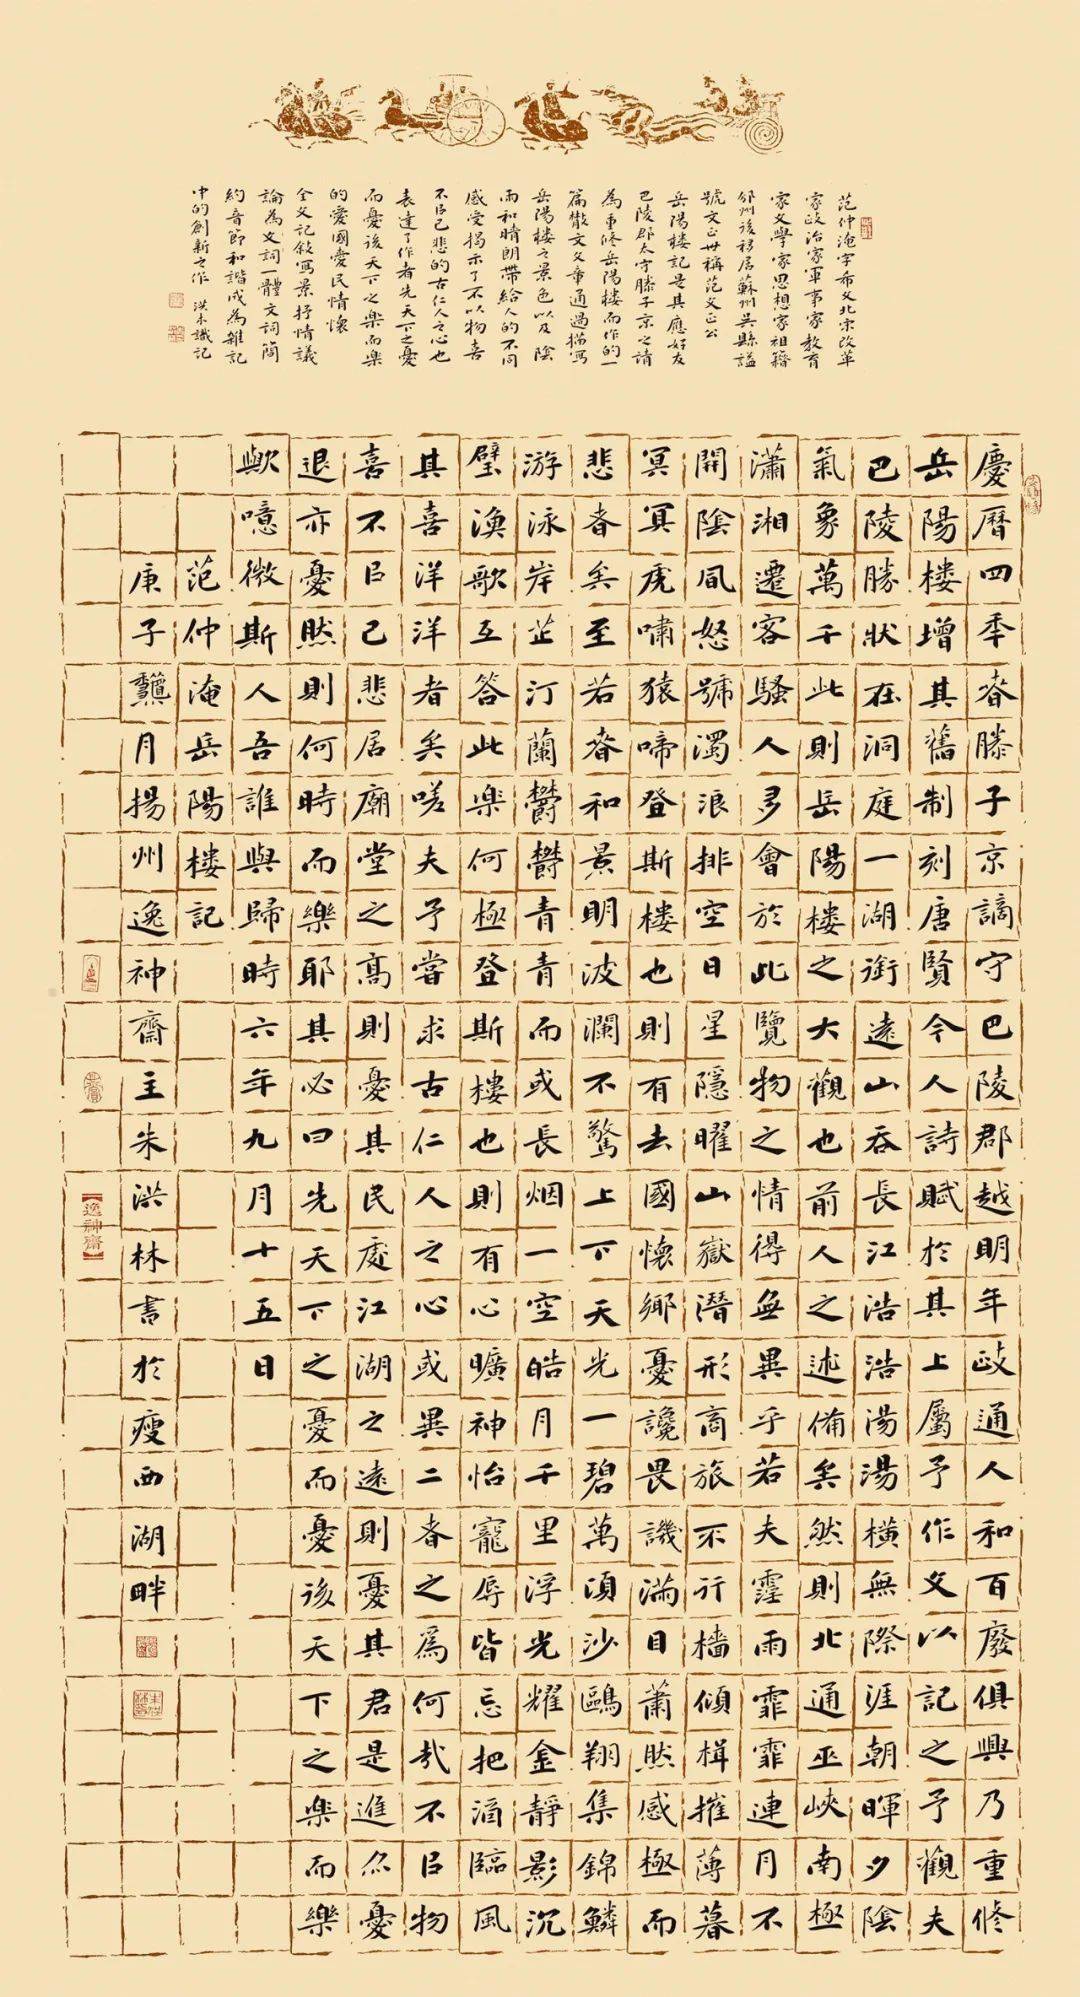 范仲淹字希文北宋改革
家政治家軍事家教育
家文學家思想家祖籍
邠州後移居蘇州吳縣謚
號文正世稱范文正公
岳陽樓記是其應好友
巴陵郡太守滕子京之請
為重修岳陽樓而作的一
篇散文文章通過描寫
岳陽樓之景色以及陰
雨和晴朗帶給人的不同
感受揭示了不以物喜
不以己悲的古仁人之心也
表達了作者先天下之憂
而憂後天下之樂而樂
的愛國愛民情懷
全文記敘寫景抒情議
論為文詞一體文詞簡
約音節和諧成為雜記
中的創新之作 洪木識記
慶曆四秊春滕子京謫守巴陵郡越明年政通人和百廢俱興乃重修
岳陽樓增其舊制刻唐賢今人詩賦於其上屬予作文以記之予觀夫
巴陵勝狀在洞庭一湖銜遠山吞長江浩浩湯湯橫無際涯朝暉夕陰
氣象萬千此則岳陽樓之大觀也前人之述備矣然則北通巫峽南極
瀟湘遷客騷人多會於此覽物之情得無異乎若夫霪雨霏霏連月不
開陰風怒號濁浪排空日星隱曜山嶽潛形商旅不行檣傾楫摧薄暮
冥冥虎嘯猿啼登斯樓也則有去國懷鄉憂讒畏譏滿目蕭然感極而
悲者矣至若春和景明波瀾不驚上下天光一碧萬頃沙鷗翔集錦鱗
游泳岸芷汀蘭鬱鬱青青而或長烟一空皓月千里浮光耀金靜影沉
璧漁歌互答此樂何極登斯樓也則有心曠神怡寵辱皆忘把酒臨風
其喜洋洋者矣嗟夫予嘗求古仁人之心或異二者之為何哉不以物
喜不以己悲居廟堂之高則憂其民處江湖之遠則憂其君是進亦憂
退亦憂然則何時而樂耶其必曰先天下之憂而憂後天下之樂而樂
歟噫微斯人吾誰與歸時六年九月十五日
范仲淹岳陽樓記
庚子龝月揚州逸神齋主朱洪林書於瘦西湖畔
逸神齋